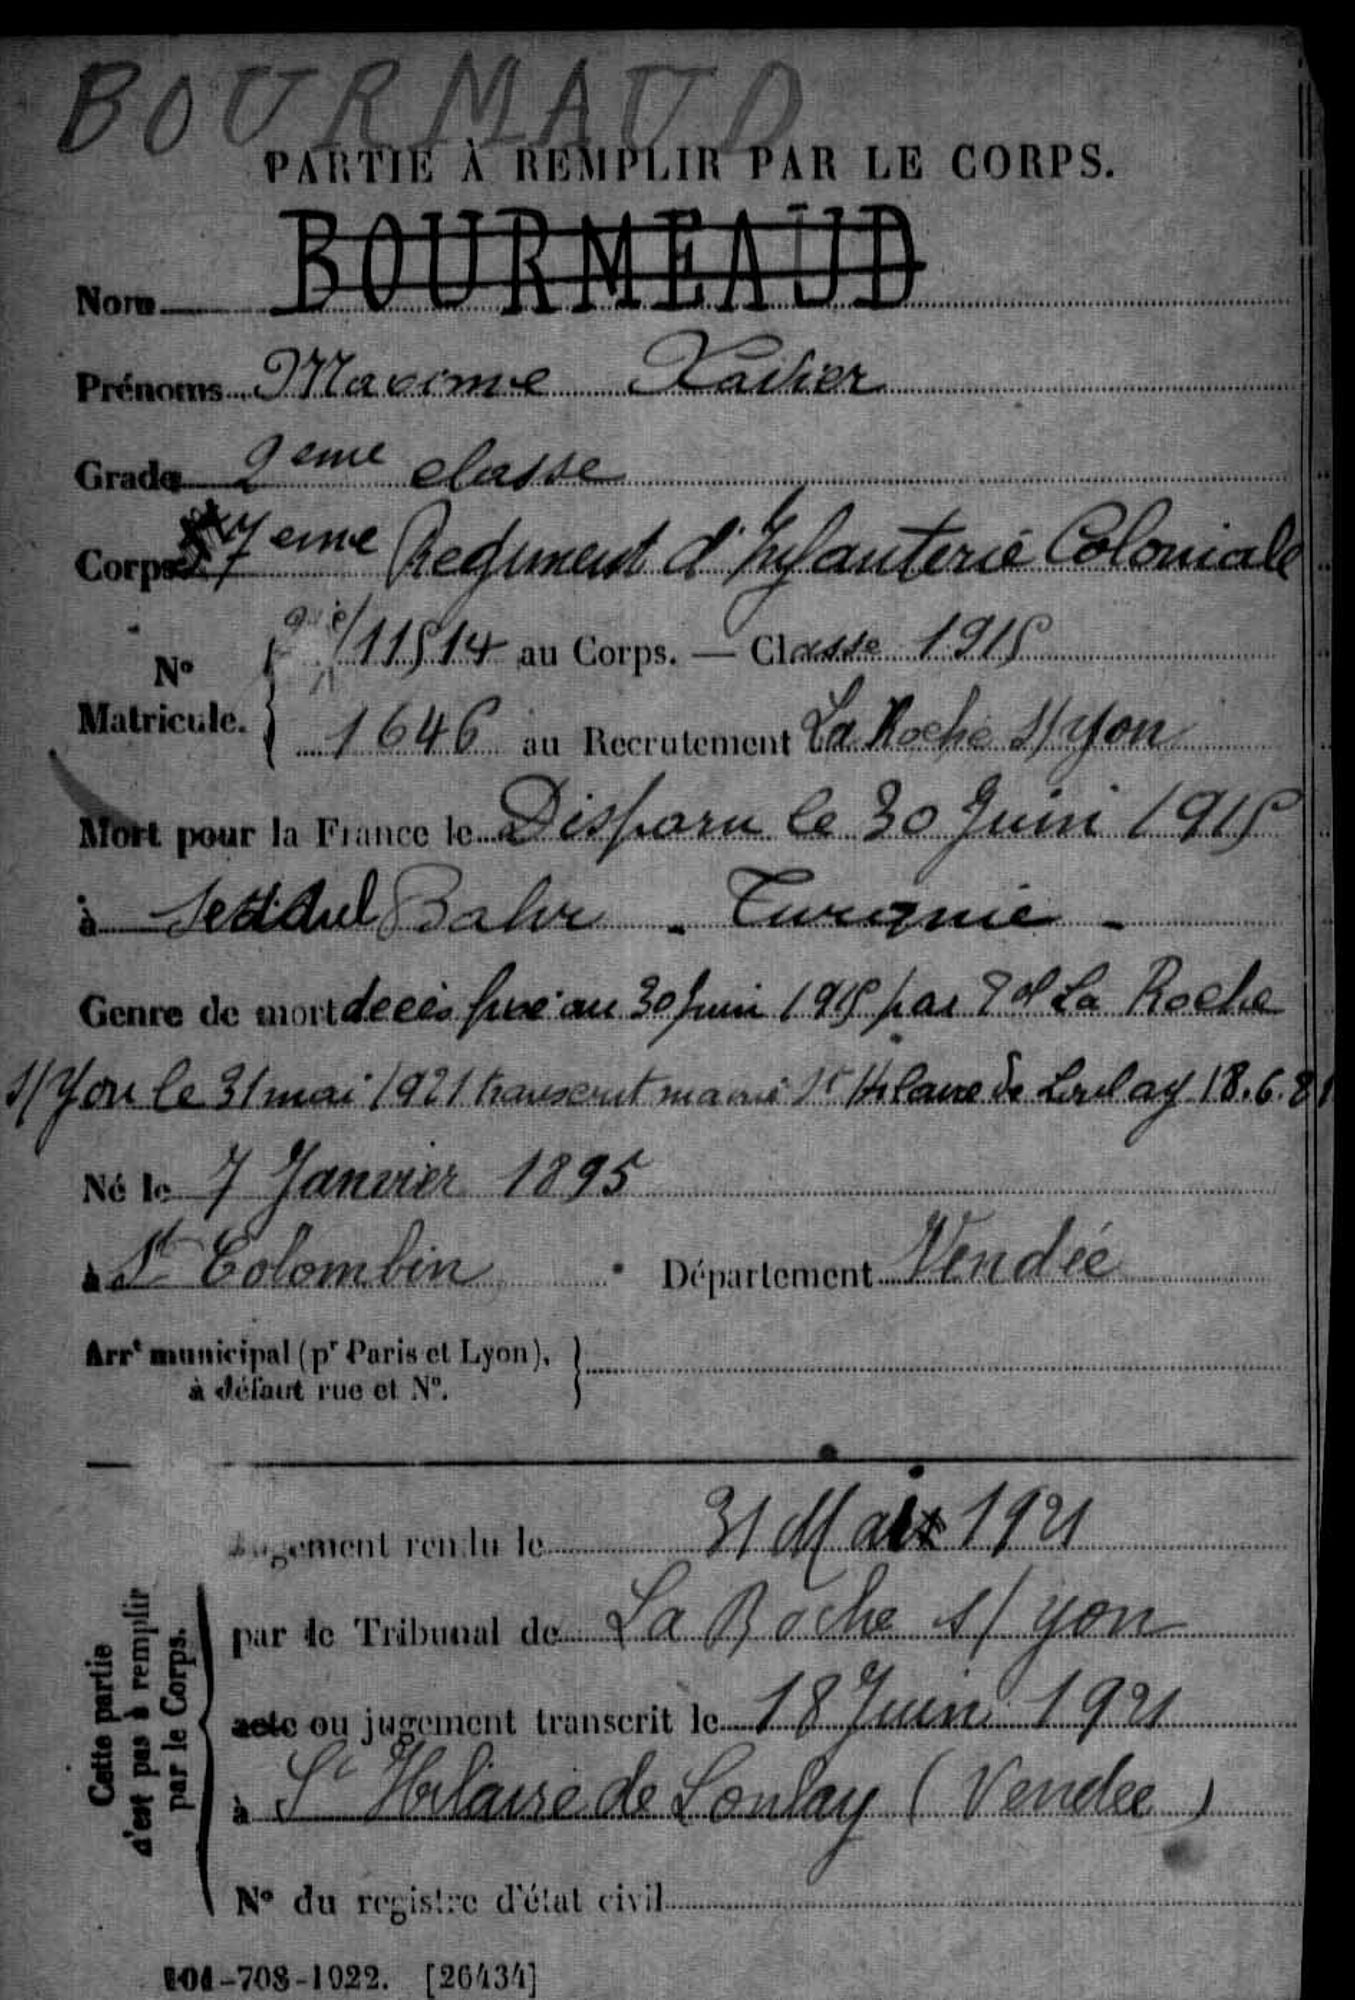 BOURMAUD
PARTIE À REMPLIR PAR LE CORPS.
Nom BOURMEAUD
Prénoms Maxime Xavier
Grade 2eme classe
Corps 7eme Regiment d'Infanterie Coloniale
N° Matricule. 11514 au Corps. — Classe 1915
1646 au Recrutement La Roche s/Yon
Mort pour la France le Disparu le 30 Juin 1915
à Seddul Bahr - Turquie -
Genre de mort décès fixé au 30 juin 1915 par Tal La Roche
s/Yon le 31 mai 1921 transcrit mairie St Hilaire de Loulay 18.6.21
Né le 7 Janvier 1895
à St Colombin Département Vendée
Arrt municipal (pr Paris et Lyon),
à défaut rue et N°.
Jugement rendu le 31 Mai 1921
par le Tribunal de La Roche s/ Yon
acte ou jugement transcrit le 18 Juin 1921
à St Hilaire de Loulay (Vendée)
N° du registre d'état civil
Cette partie
d'est pas à remplir
par le Corps.
101-708-1922. [26434]